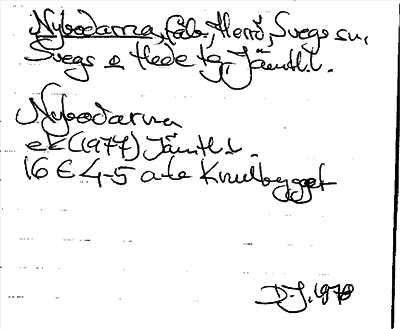 Nybodarna, fäb., Herrö, Svegs sn,
Svegs o Hede tg, Jämtl. l.
Nybodarna
ek (1977) Jämtl. l.
16 E 4-5 a-te
D-J. 1978